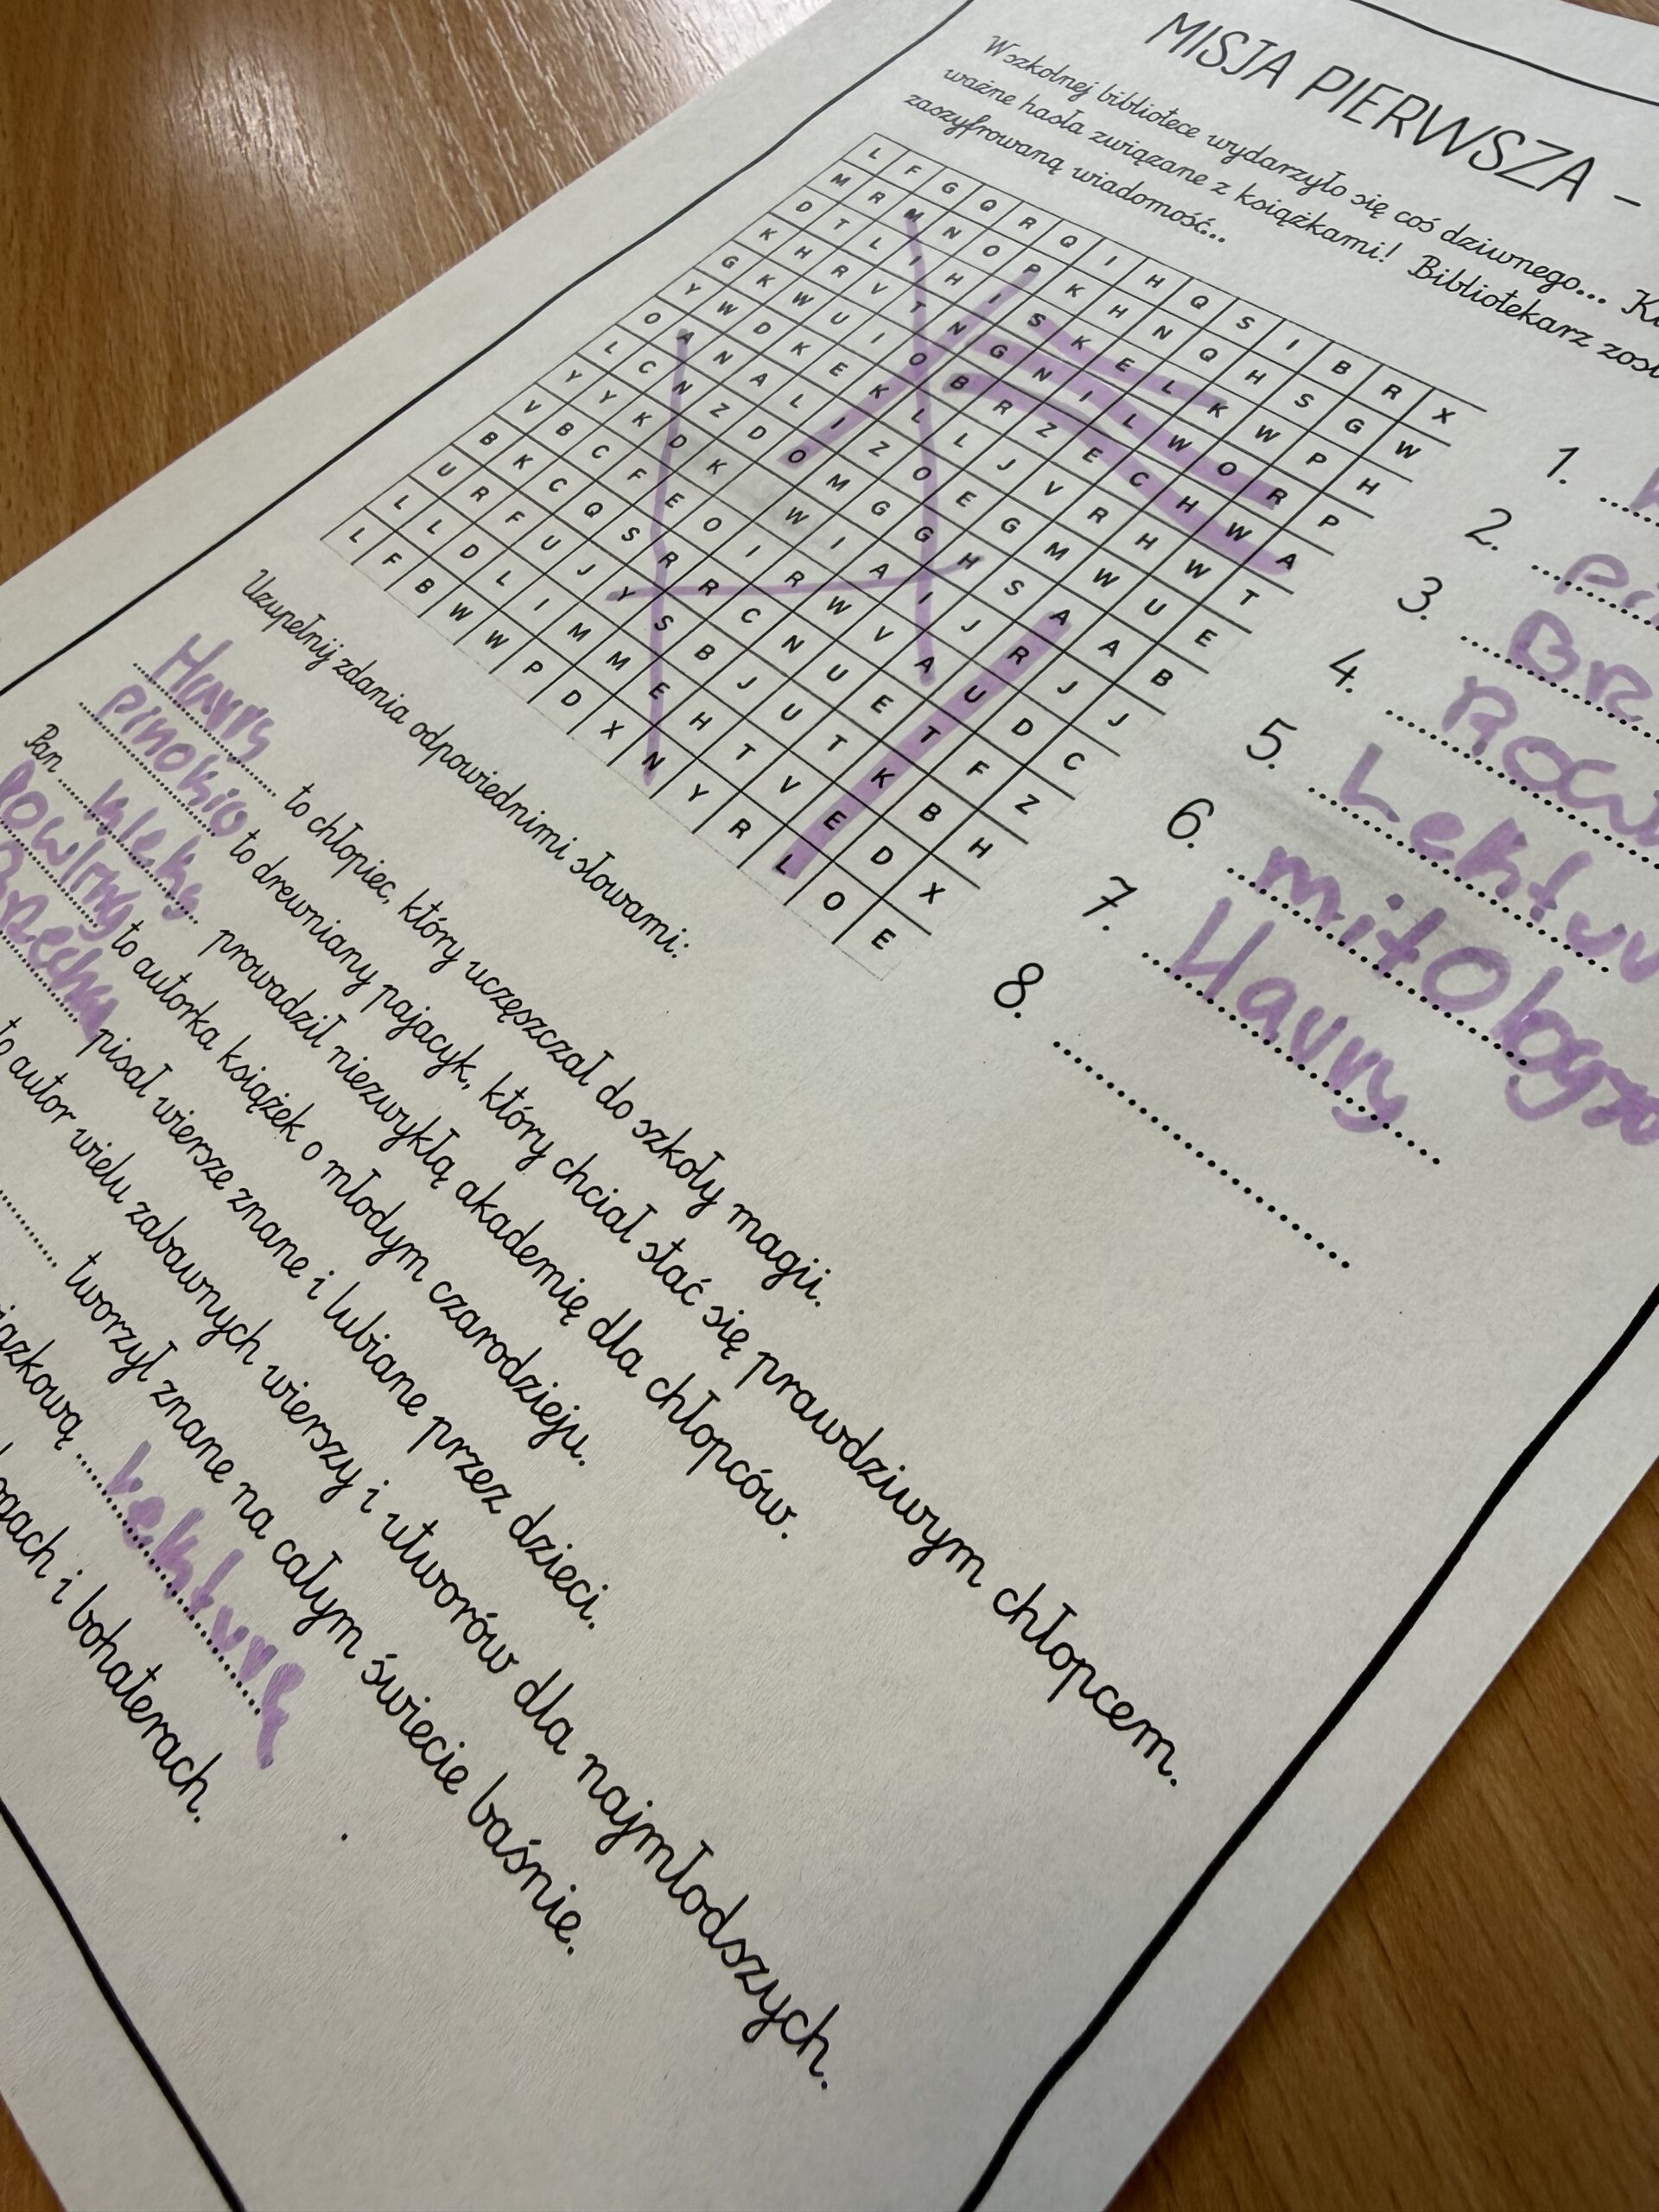 MISJA PIERWSZA –
W szkolnej bibliotece wydarzyło się coś dziwnego...
ważne hasła związane z książkami! Bibliotekarz
zaszyfrowaną wiadomość...
L F G Q R Q I H Q S I B R X
M R M N O P K H N Q H S G W
D T L I H I S K E L K W P H
K H R V T N G N I L W O R P
G K W U I O B R Z E C H W A
Y W D K E K L L J V R H W T
O A N A L I Z O E G M W U E
L C N Z D O M G G H S A A B
Y Y K D K W I A I J R J J
V B C F E O I R W V A U D C
B K C Q S R R C N U E T F Z
U R F U J Y S B J U T K B H
L L D L I M M E H T V E D X
L F B W W P D X N Y R L O E
1.
2.
3.
4.
5.
6.
7. Harry
8.
Uzupełnij zdania odpowiednimi słowami:
Harry to chłopiec, który uczęszczał do szkoły magii.
pinokio to drewniany pajacyk, który chciał stać się prawdziwym chłopcem.
Pan kleks prowadził niezwykłą akademię dla chłopców.
Rowling to autorka książek o młodym czarodzieju.
pisał wiersze znane i lubiane przez dzieci.
to autor wielu zabawnych wierszy i utworów dla najmłodszych.
tworzył znane na całym świecie baśnie.
lekturę
i bohaterach.